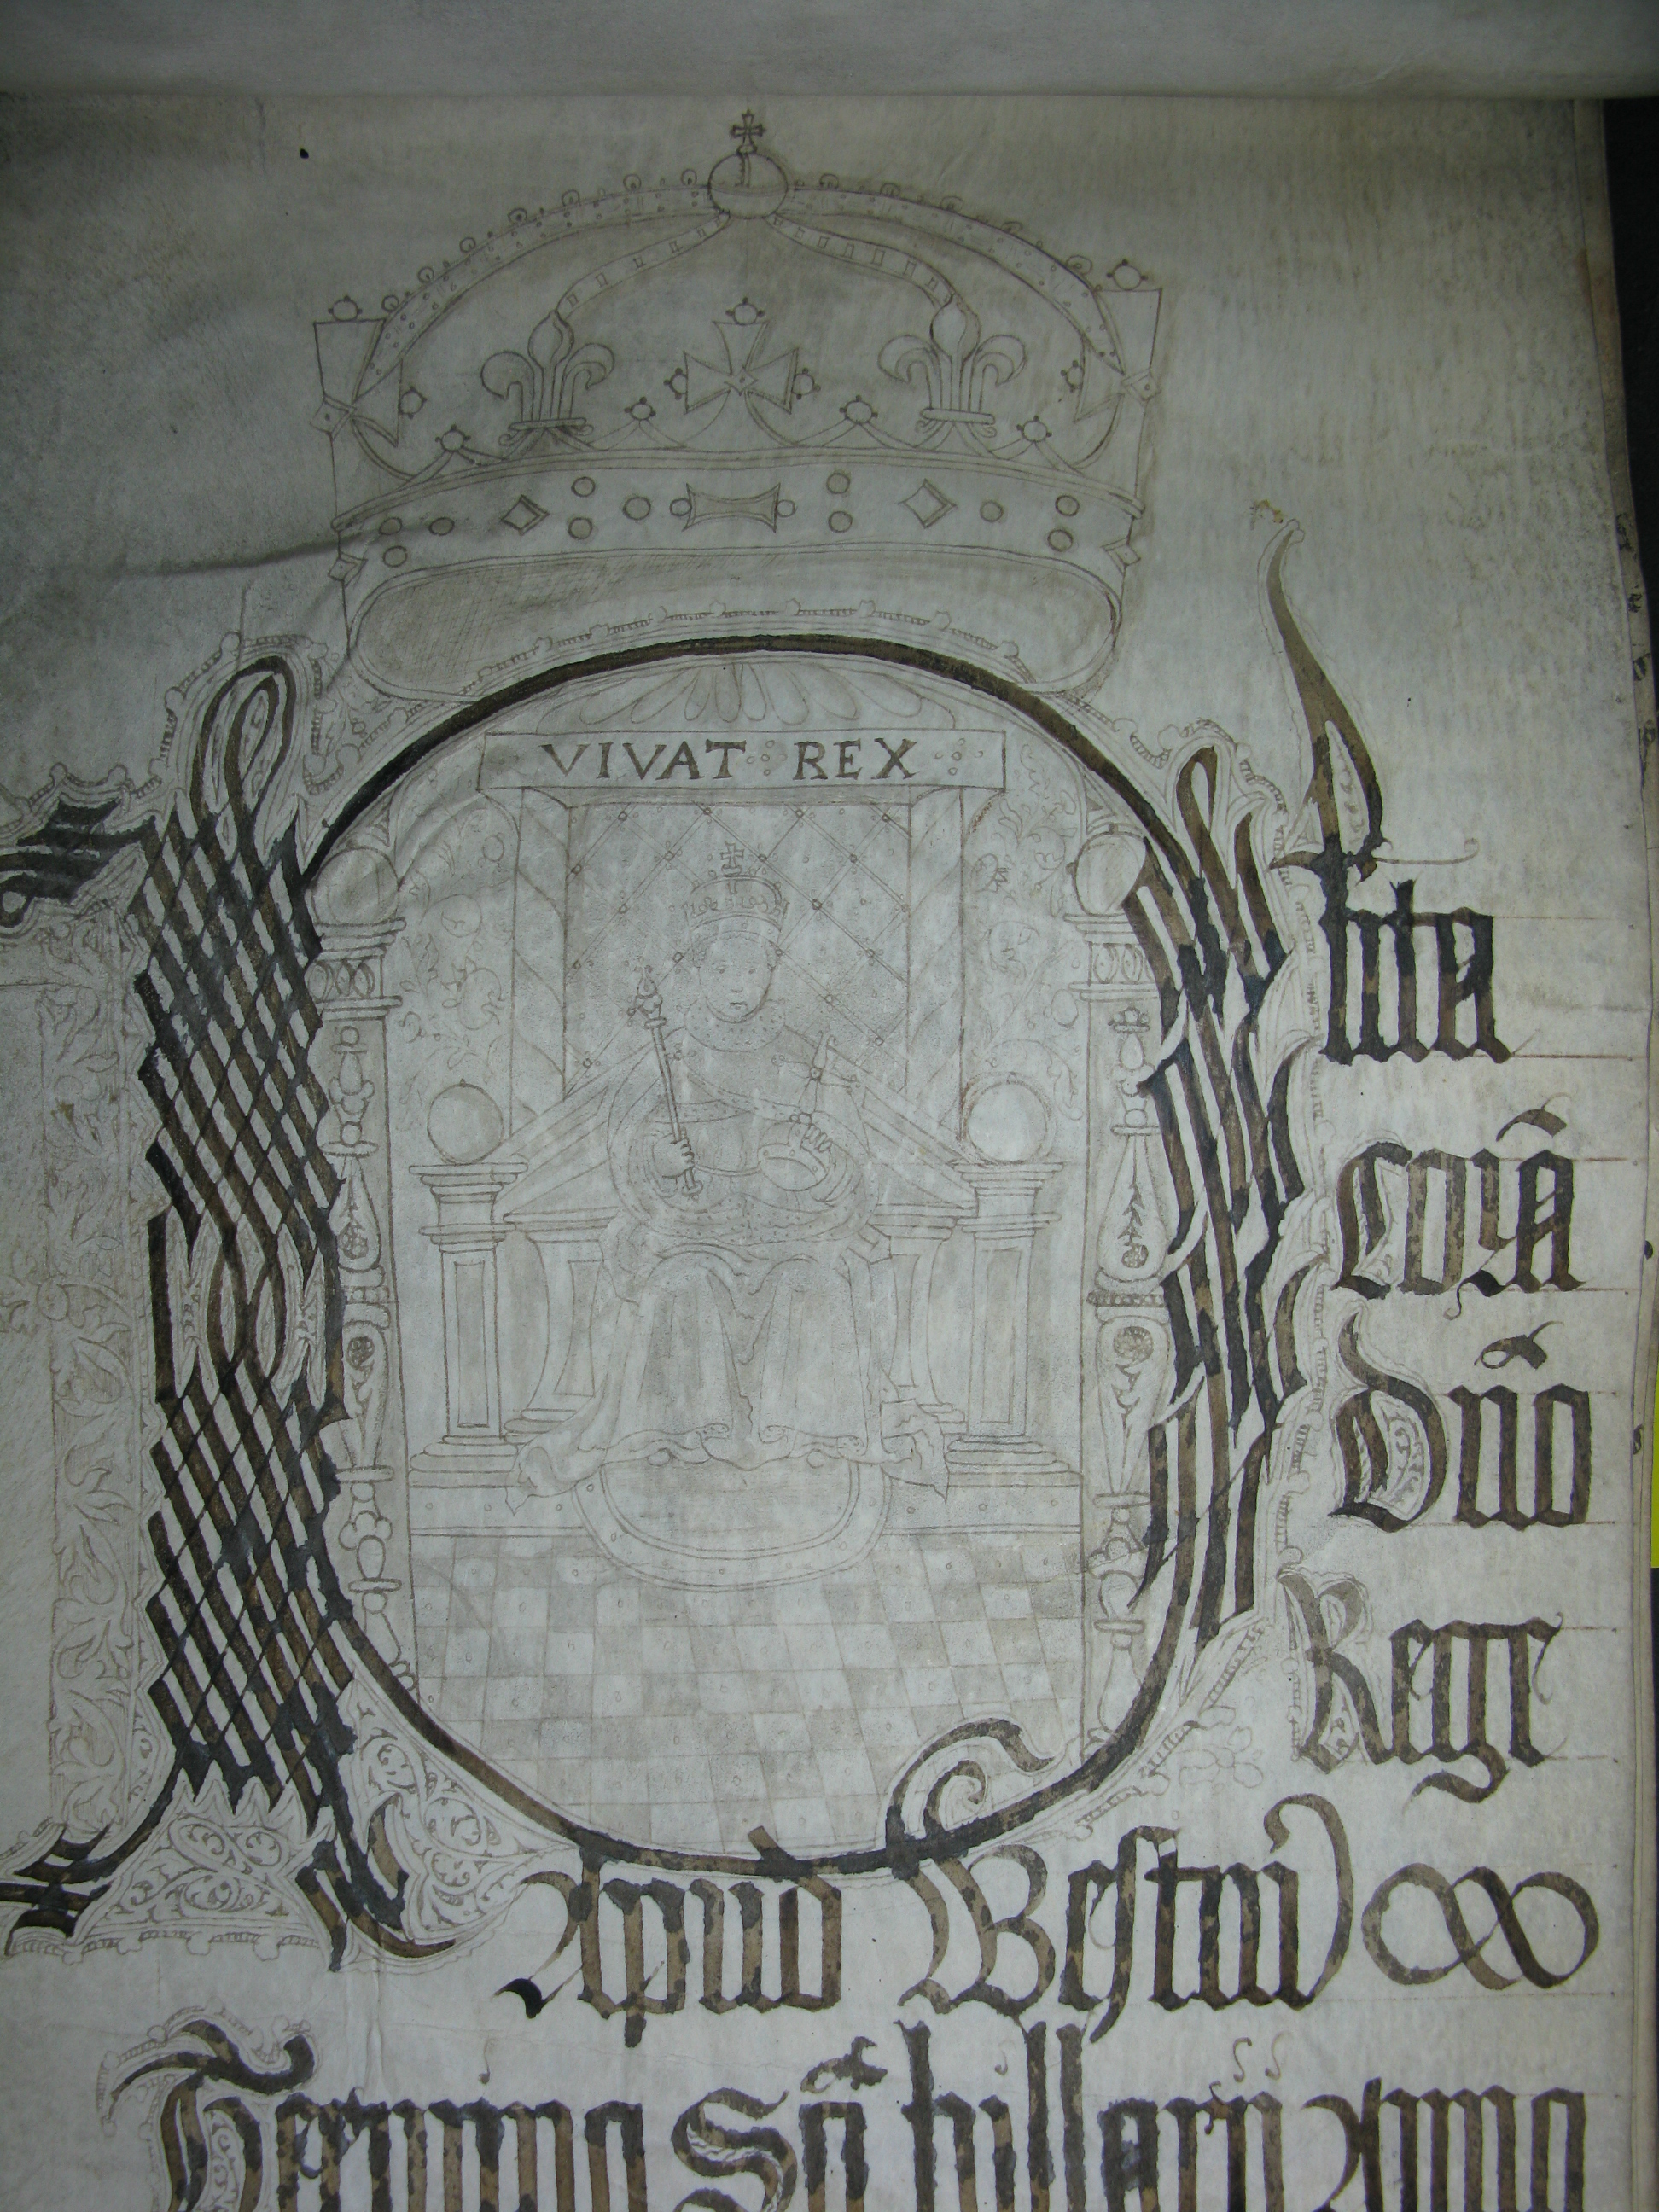 VIVAT REX
Plita
corā
Dn̄o
Rege
Apud Westm̄
Termino Sc̄i hillarij Anno